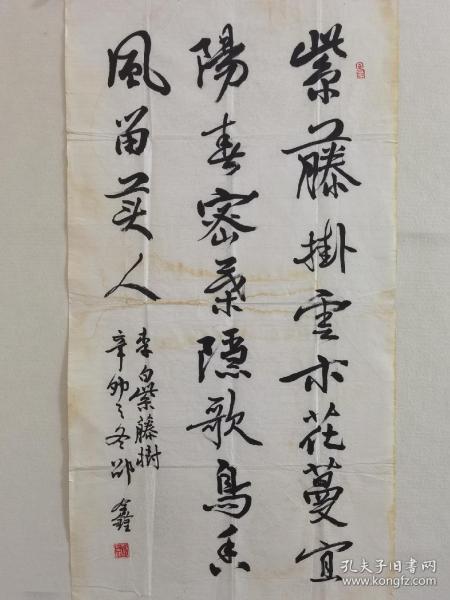 紫藤掛雲木花蔓宜
陽春密葉隱歌鳥香
風留美人
李白紫藤樹
辛卯之冬邵鑫
孔夫子旧书网
www.kongfz.com